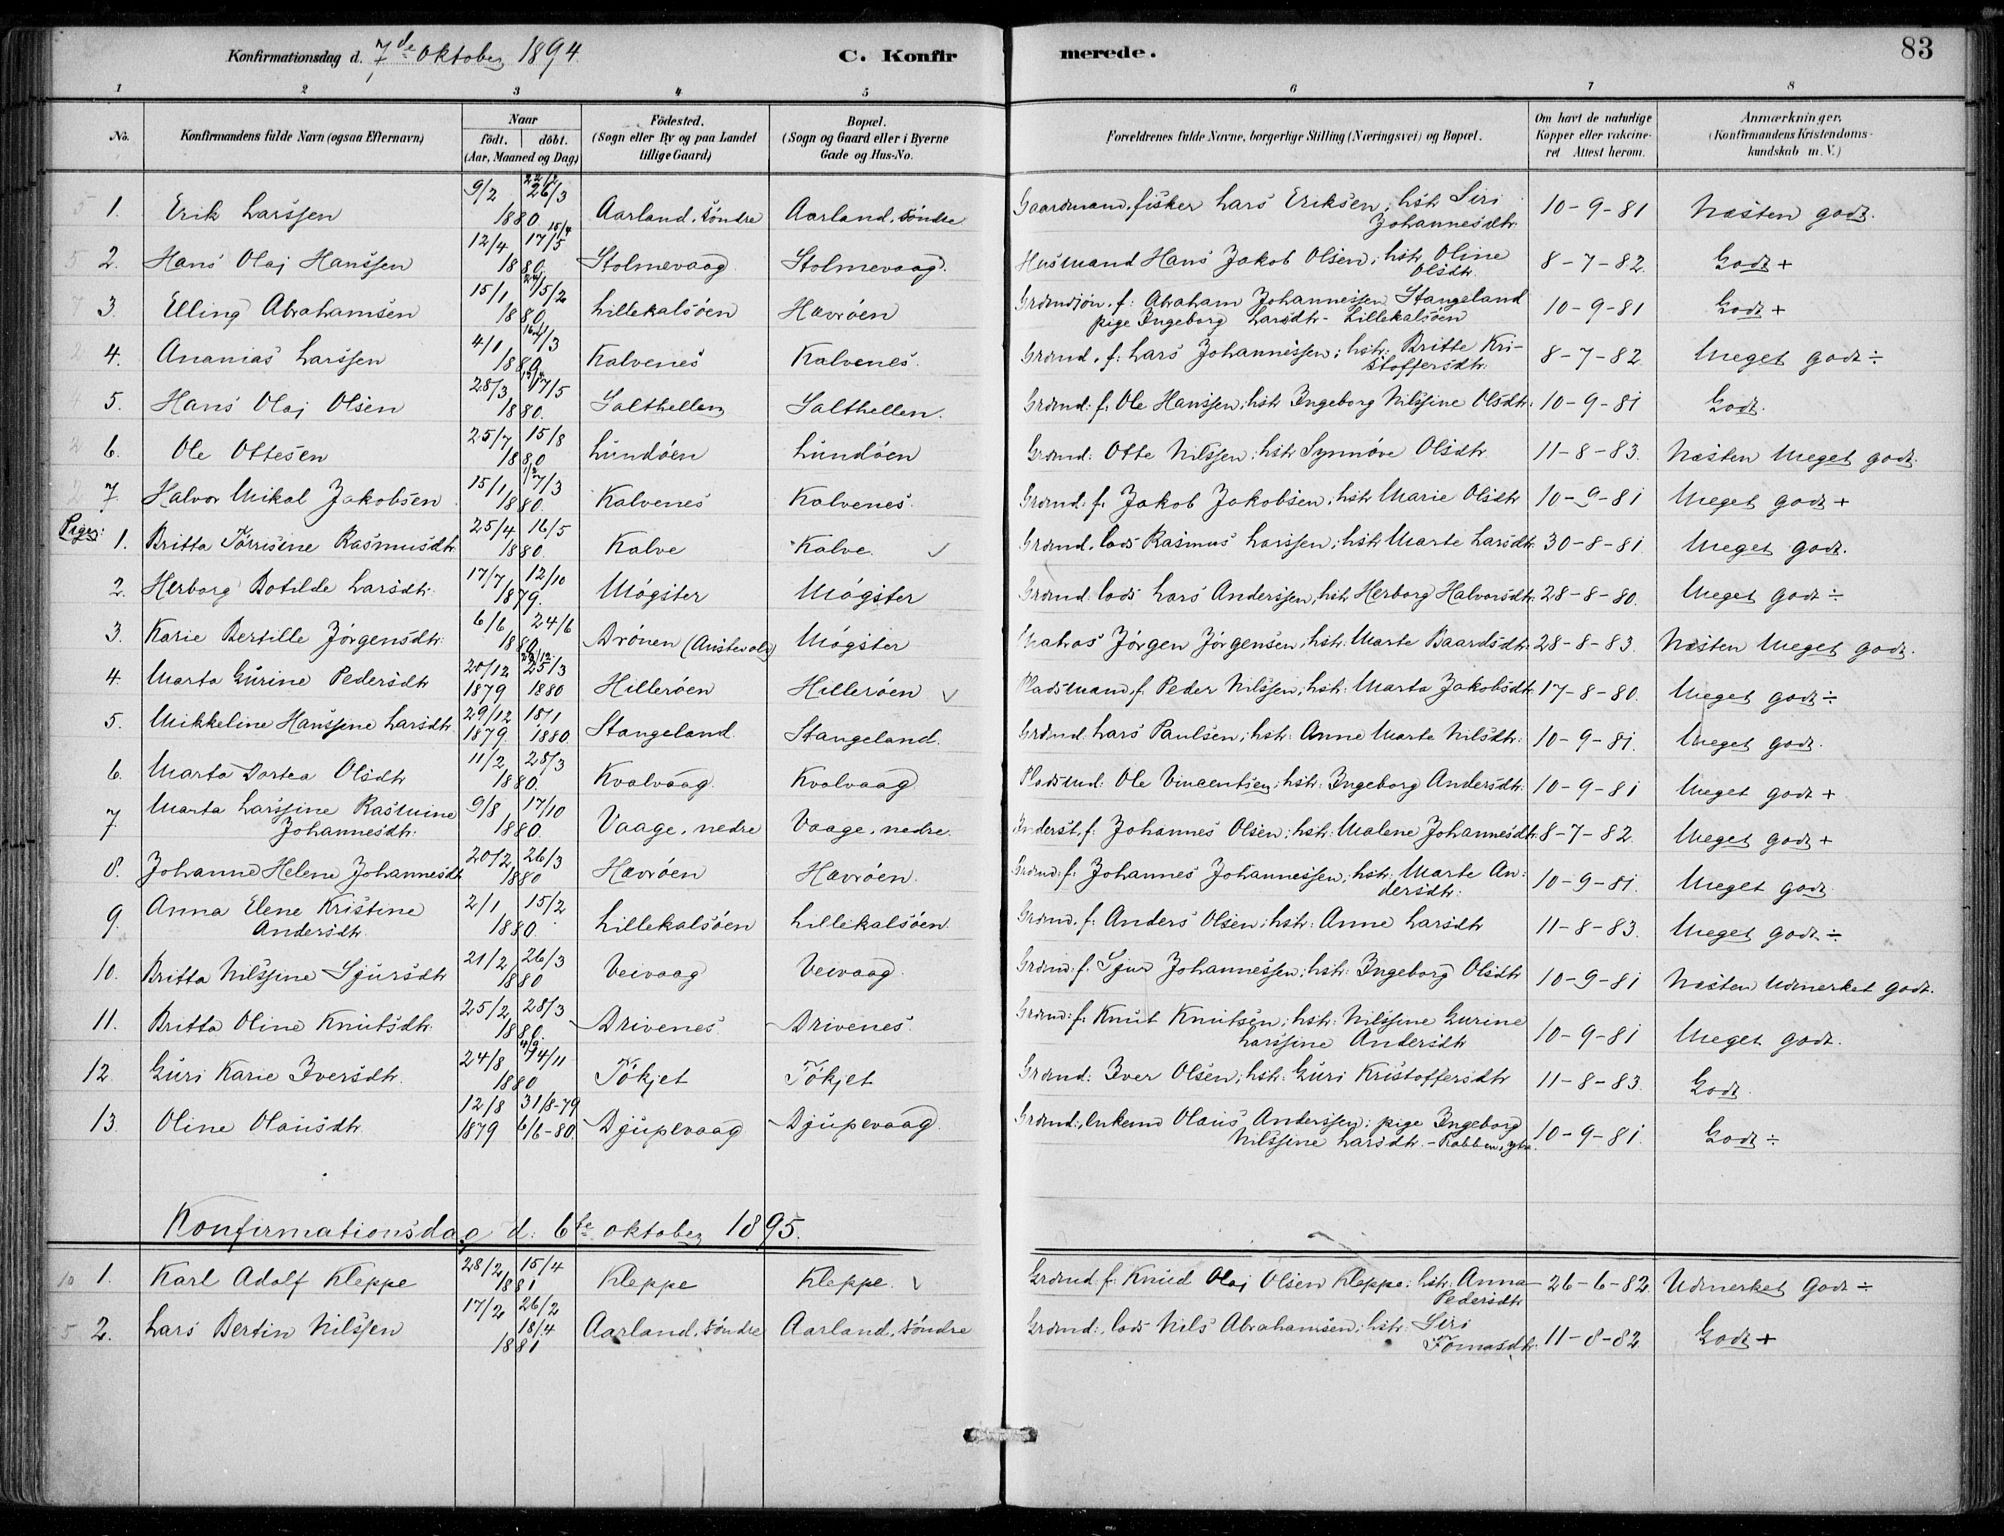 Konfirmationsdag d. 7de Oktober 1894. C. Konfirmerede. 83
1 2 3 4 5 6 7 8
No. Konfirmandens fulde Navn (ogsaa Efternavn) Naar født. døbt. (Aar, Maaned og Dag) Fødested. (Sogn eller By og paa Landet tillige Gaard) Bopæl. (Sogn og Gaard eller i Byerne Gade og Hus-No. Forældrenes fulde Navne, borgerlige Stilling (Næringsvei) og Bopæl. Om havt de naturlige Kopper eller vakcineret Attest herom. Anmærkninger. (Konfirmandens Kristendomskundskab m. V.)
5 1. Erik Larssen 9/2 22/2 26/3 1880 Aarland, søndre Aarland, søndre Gaardmand, fisker Lars Eriksen, hstr Siri Johannesdtr. 10-9-81 Næsten godt.
5 2. Hans Olaj Hanssen 12/4 15/4 17/5 1880. Stolmevaag Stolmevaag. Husmand Hans Jakob Olsen; hstr. Oline Olsdtr. 8-7-82. Godt +
7 3. Elling Abrahamsen 15/1 15/2 1880. Lillekalsöen Havröen f: Abraham Johannessen Stangeland pige Ingeborg Larsdtr - Lillekalsöen 10-9-81 Godt +
2 4. Ananias Larssen 4/1 /3 1880 Kalvenes Kalvenes. Grdmd. f: Lars Johannessen; hstr. Britte Kristoffersdtr. 8-7-82. Meget godt ÷
4 5. Hans Olaj Olsen 28/3 17/5 1880. Salthellen Salthellen. Grdmd: f: Ole Hanssen; hstr Ingeborg Nilssine Olsdtr. 10-9-81 Godt.
2 6. Ole Ottesen 25/7 15/8 1880 Lundöen Lundöen Grdmd: Otte Nilssen; hstr Synnöve Olsdtr. 11-8-83. Næsten Meget godt.
2 7. Halvor Mikal Jakobsen 15/1 7/3 1880. Kalvenes Kalvenes. Grdmd: f. Jakob Jakobsen; hstr Marie Olsdtr 10-9-81 Meget godt +
Piger:
1. Britta Törrisine Rasmusdtr 25/4 16/5 1880. Kalve Kalve. ✓ Grdmd, lods Rasmus Larssen; hstr Marte Larsdtr. 30-8-81. Meget godt.
2. Herborg Botilde Larsdtr. 17/7 12/10 1879. Mögster Mögster Grdmd: lods Lars Anderssen, hstr Herborg Halvorsdtr. 28-8-80. Meget godt ÷
3. Karie Bertille Jörgensdtr. 6/6 24/6 1880 Drönen (Austevold) Mögster Matros Jörgen Jörgensen, hstr: Marte Baardsdtr. 28-8-83. Næsten Meget godt.
4. Marta Gurine Pedersdtr 20/12 1879 28/12 25/3 1880 Hilleröen Hilleröen ✓ Pladsmand, f. Peder Nilssen; hstr: Marta Jakobsdtr. 17-8-80. Meget godt ÷
5. Mikkeline Hanssine Larsdtr. 29/12 1879. 18/1 1880. Stangeland. Stangeland. Grdmd. Lars Paulsen; hstr: Anne Marte Nilsdtr. 10-9-81. Meget godt.
6. Marta Dortea Olsdtr 11/2 28/3 1880. Kvalvaag. Kvalvaag Pladsmd: Ole Vincentsen; hstr: Ingeborg Andersdtr. 10-9-81 Meget godt +
7. Marta Larssine Rasmine Johannesdtr. 9/8 17/10 1880. Vaage, nedre Vaage, nedre. Inderst, f: Johannes Olsen; hstr: Malene Johannesdtr. 8-7-82. Meget godt +
8. Johanne Helene Johannesdtr 20/2 26/3 1880 Havröen Havröen. Grdmd: f. Johannes Johannessen; hstr: Marte Andersdtr. 10-9-81. Meget godt.
9. Anna Elene Kristine Andersdtr. 2/1 15/2 1880. Lillekalsöen Lillekalsöen. Grdmd, f: Anders Olsen; hstr: Anne Larsdtr 11-8-83. Meget godt ÷
10. Britta Nilssine Sjursdtr 21/2 26/3 1880 Veivaag Veivaag. Grdmd: f. Sjur Johannessen; hstr: Ingeborg Olsdtr 10-9-81 Næsten Udmerket godt.
11. Britta Oline Knutsdtr. 25/2 28/3 1880. Drivenes Drivenes Grdmd: f. Knut Knutsen; hstr: Nilssine Gurine Larssine Andersdtr 10-9-81 Meget godt.
12. Guri Karie Iversdtr. 24/8 14/11 1880 Tökjet Tökjet Grdmd: Iver Olsen; hstr: Guri Kristoffersdtr 11-8-83. Godt.
13. Oline Olausdtr. 12/8 1879 31/8-79 6/6-80. Djupevaag Djupevaag. Grdmd:, enkemd Olaus Anderssen; pige Ingeborg Nilssine Larsdtr. - Rabben, ytre. 10-9-81. Godt ÷
Konfirmationsdag d: 6te Oktober 1895.
10 1. Karl Adolf Kleppe 28/2 15/4 1881 Kleppe Kleppe. ✓ Grdmd f: Knud Olaj Olsen Kleppe; hstr: Anna Pedersdtr 26-6-82. Udmerket godt ÷
5 2. Lars Bertin Nilssen 17/2 26/2 18/4 1881 Aarland, söndre Aarland, söndre Grdmd:, lods Nils Abrahamsen; hstr: Siri Tomasdtr. 11-8-82. Godt +